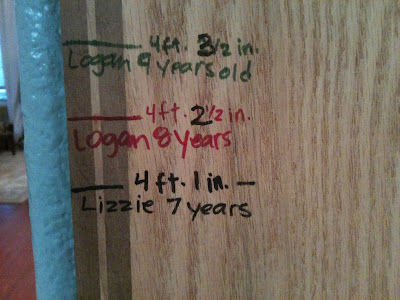 4ft. 3 1/2 in.
Logan 9 years old
4ft. 2 1/2 in.
Logan 8 years
4 ft. 1 in. —
Lizzie 7 years